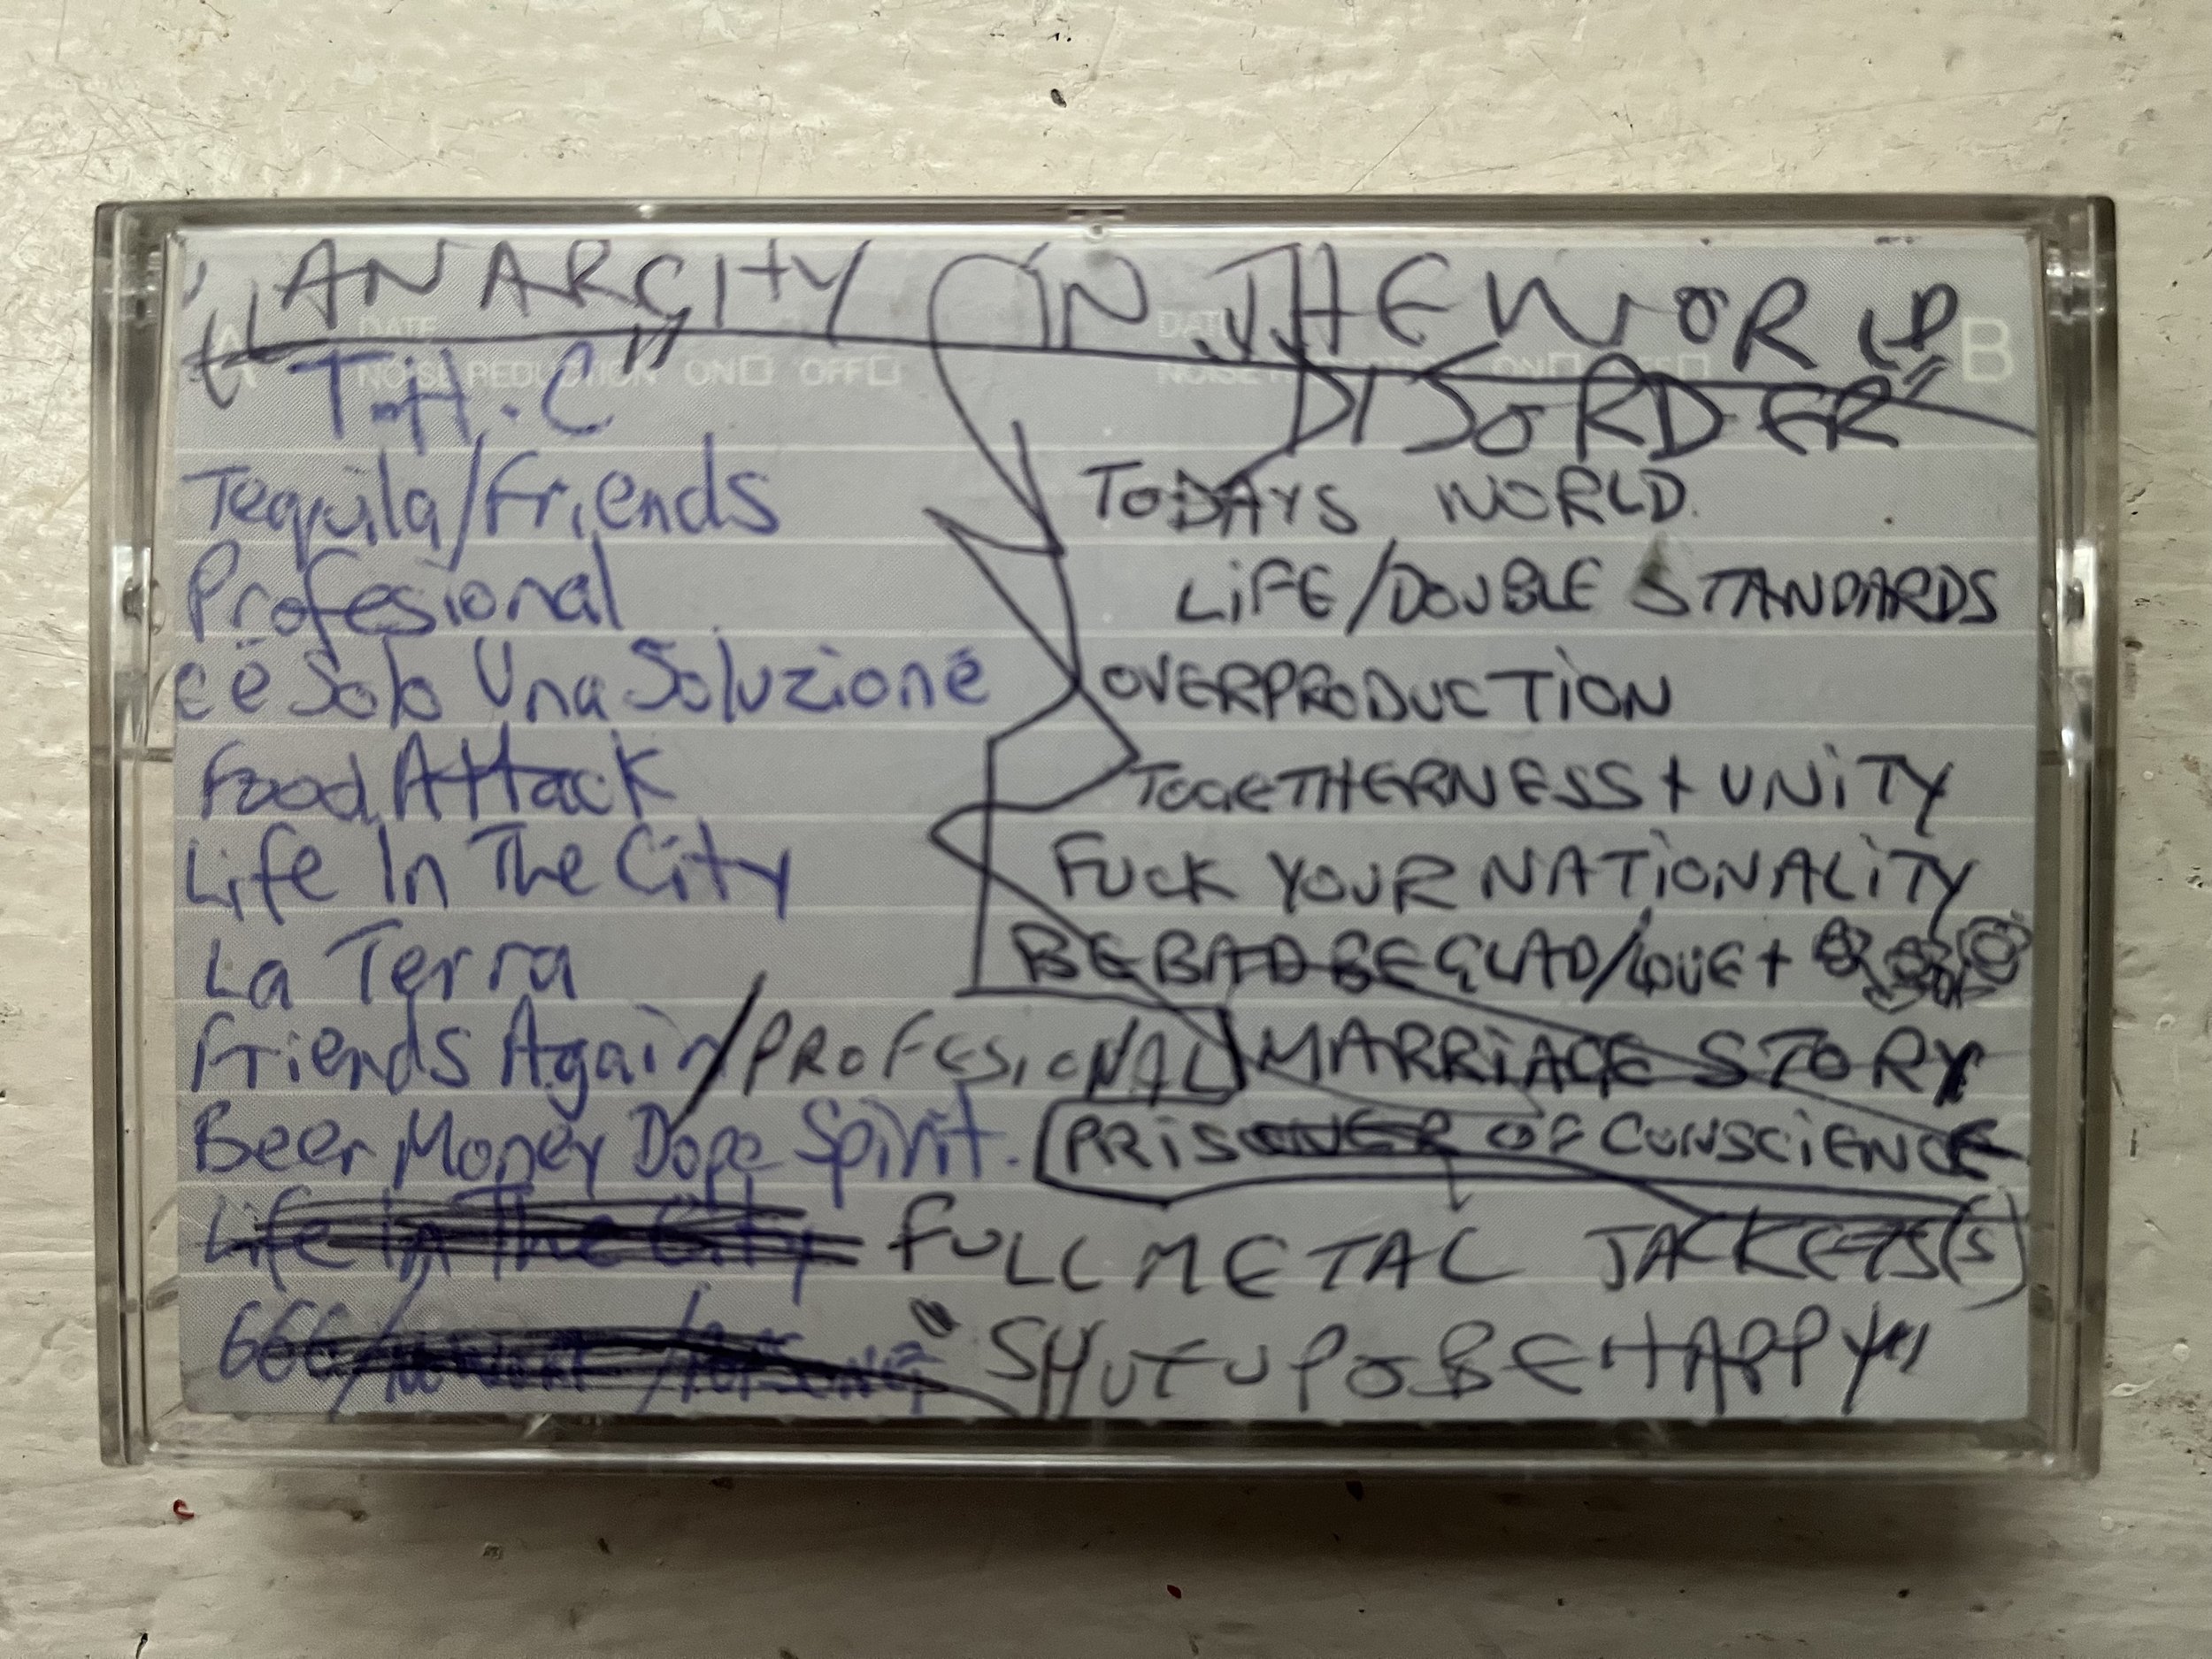 "ANARCITY IN THE WORLD"
A DATE
NOISE REDUCTION ON OFF
DATE
ON B
T.H.C
DISORDER
Tequila/Friends
Profesional
c'ë Solo Una Soluzione
Food Attack
Life In The City
La Terra
Friends Again/PROFESIONAL
Beer Money Dope Spirit.
Life In The City
666/
TODAYS WORLD.
LiFE/DOUBLE STANDARDS
OVERPRODUCTION
TOGETHERNESS + UNiTY
FUCK YOUR NATiONALiTY
BE BAD BE GLAD/LOVE +
MARRiAGE STORY
PRiSONER OF CONSCiENCE
FULL METAL JACKETS(S)
"SHUT UP O BE HAPPY"